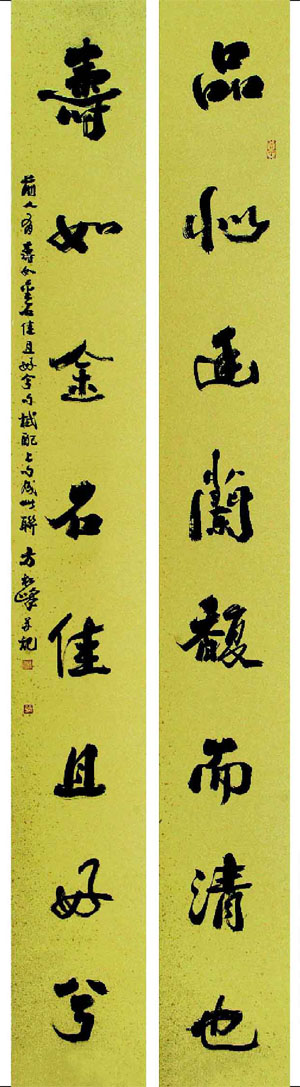 品似廷蘭馥而清也
壽如金石佳且好兮
前人有壽如金石佳且好兮句拭配上句成此聯 方 并祀